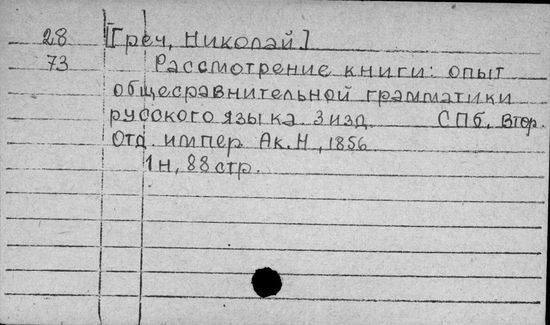 28 [Греч, Николай.]
73 Рассмотрение книги: опыт
общесравнительной грамматики
русского языка. 3 изд. СПб, Втор.
Отд. импер. Ак. Н., 1856
1н, 88 стр.